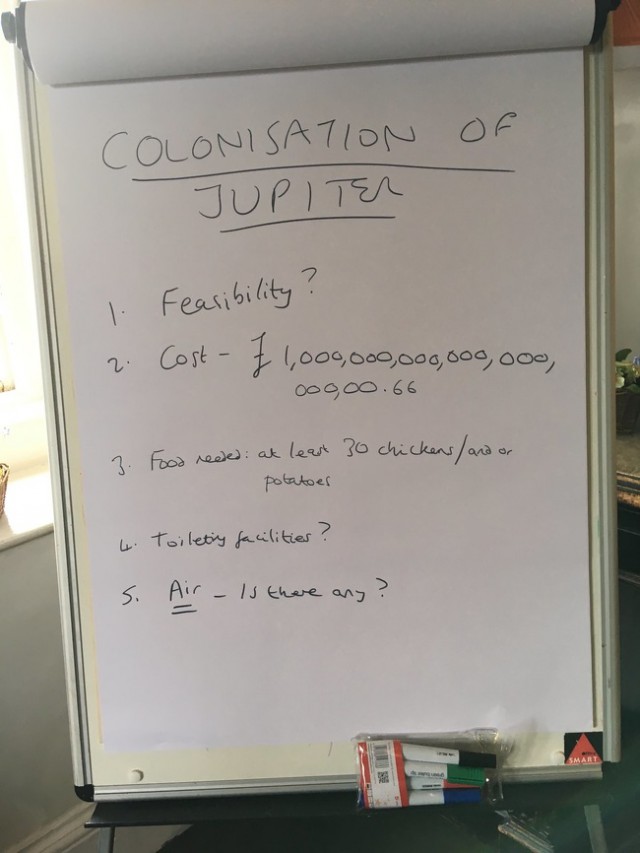 COLONISATION OF
JUPITER
1. Feasibility?
2. Cost - £1,000,000,000,000,000,
000,00.66
3. Food needed: at least 30 chickens/and or
potatoes
4. Toileting facilities?
5. Air - Is there any?
SMART